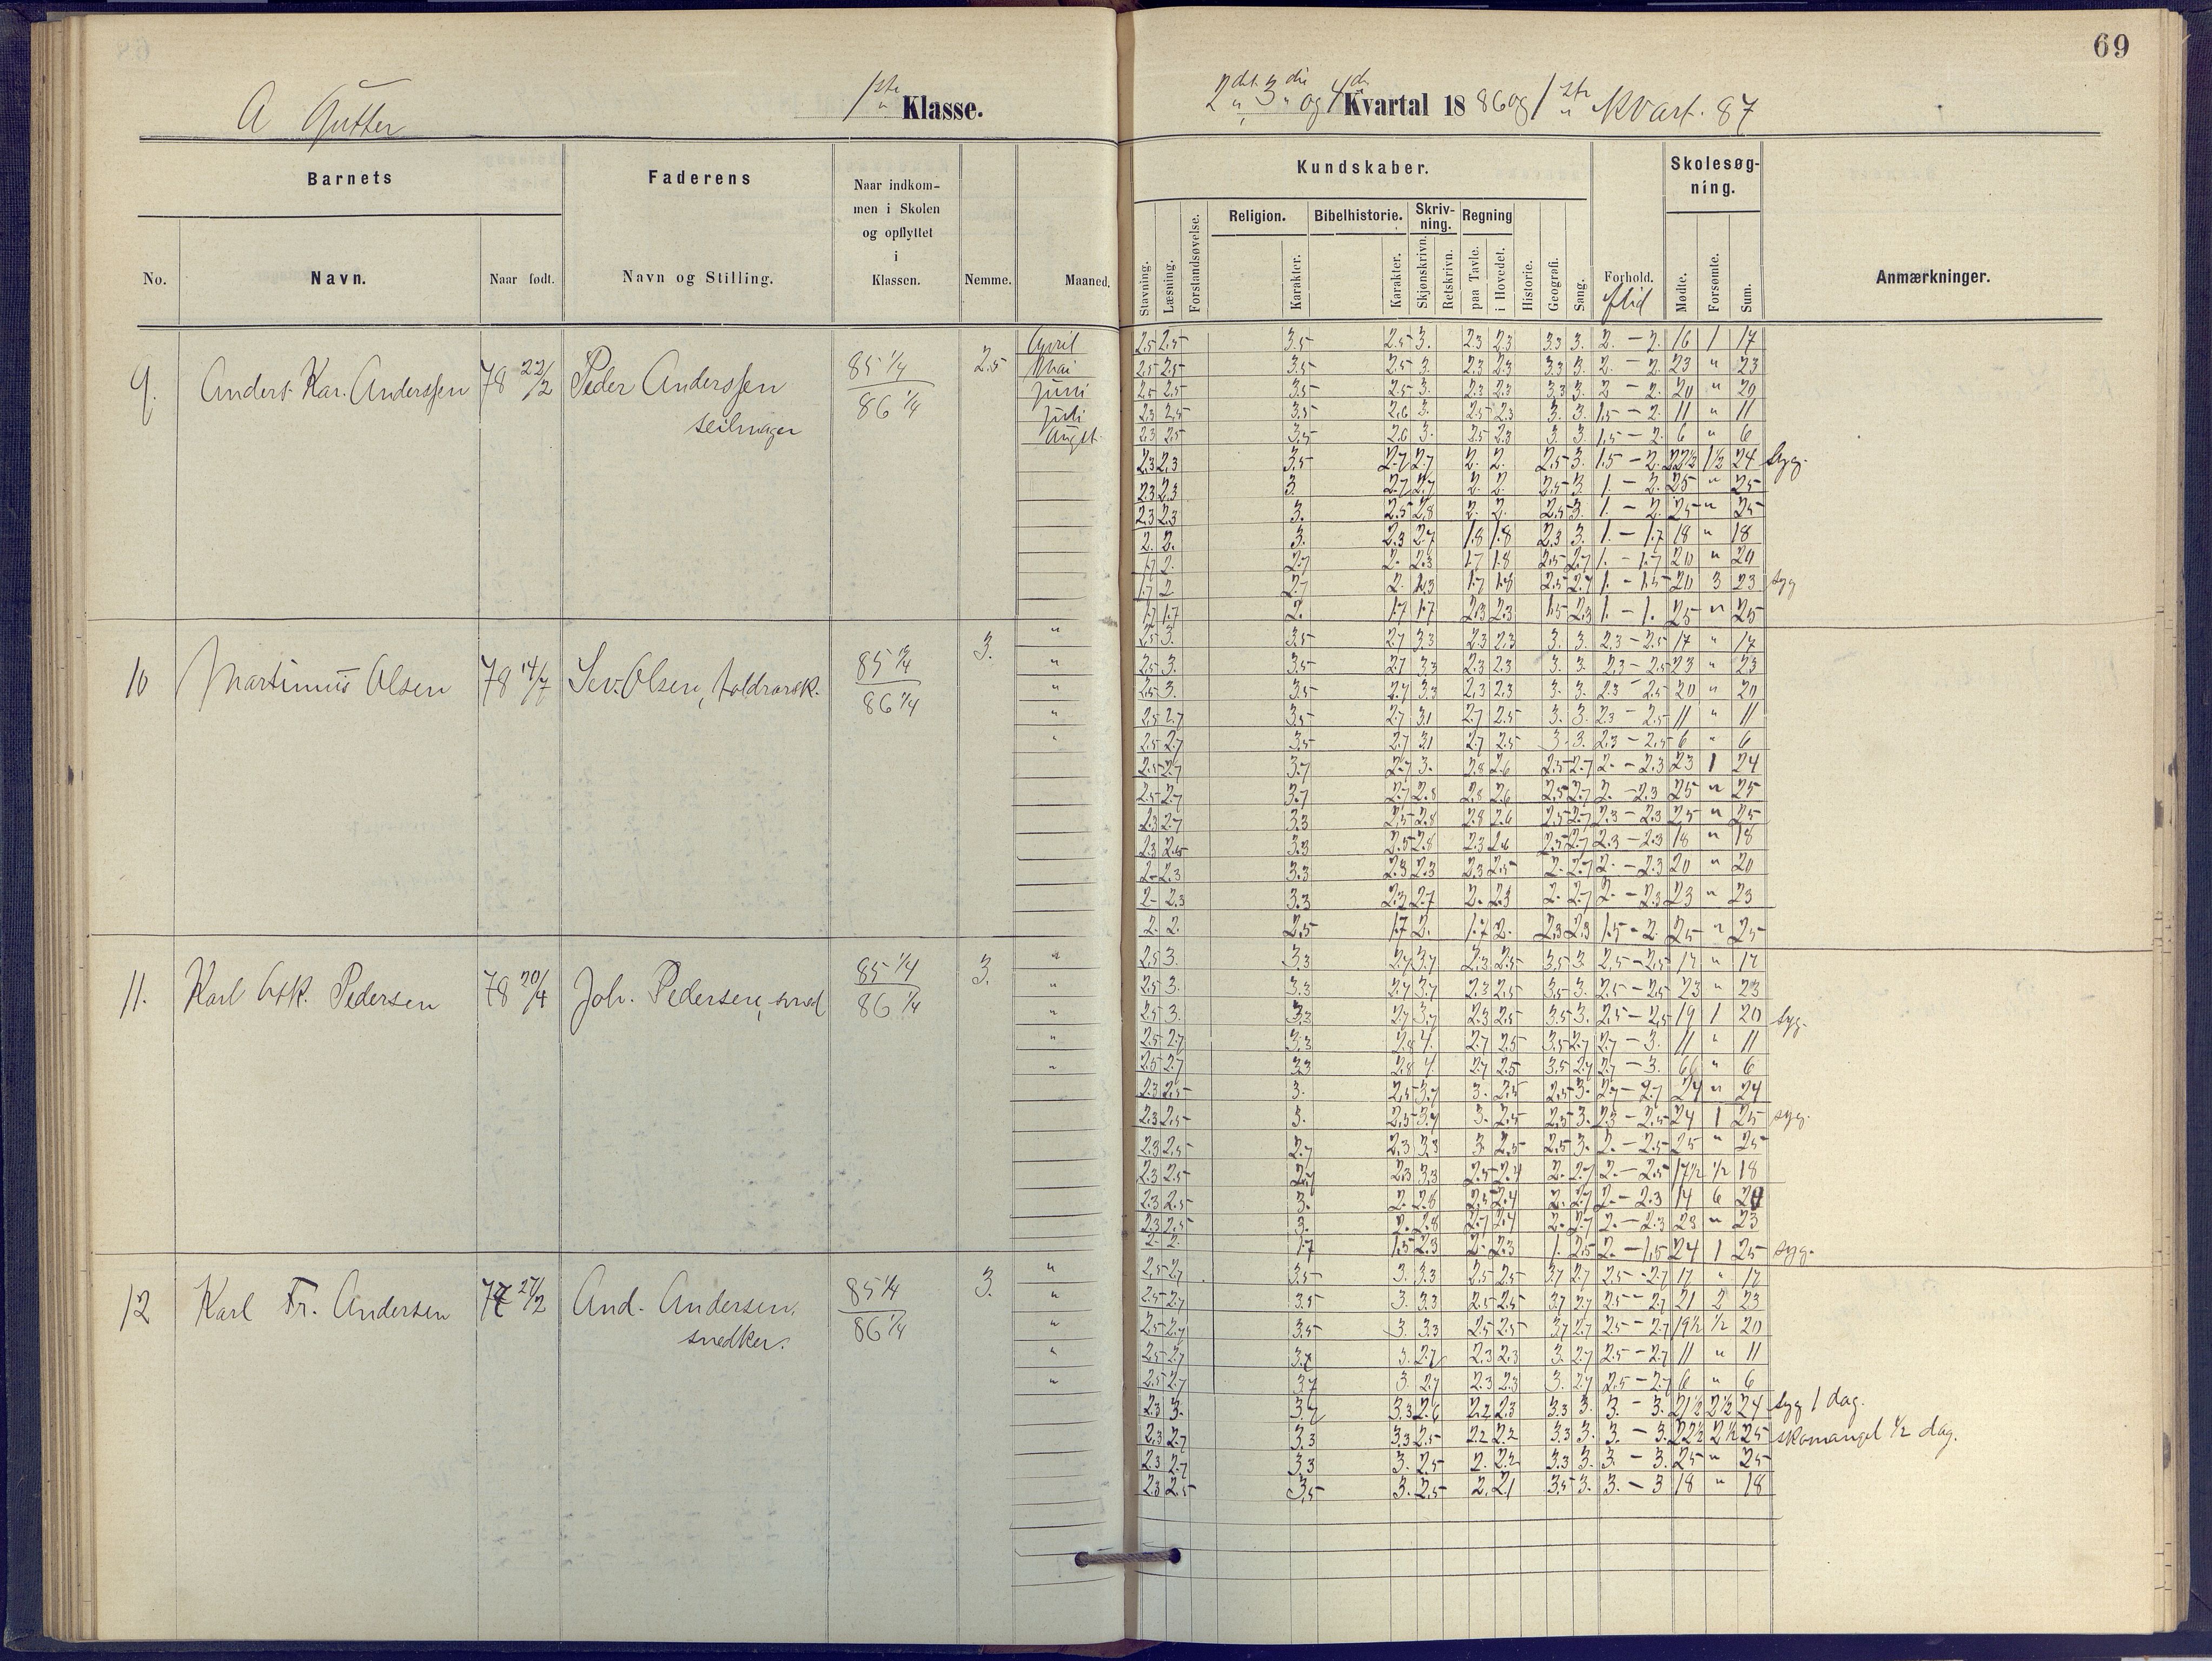 69
A Gutter
1ste Klasse.
2det 3die og 4de Kvartal 1886 og 1ste Kvart. 87
Barnets
Faderens
Naar indkommen i Skolen og opflyttet i Klassen.
Nemme.
Maaned.
No.
Navn.
Naar født.
Navn og Stilling.
Kundskaber.
Stavning.
Læsning.
Forstandsøvelse.
Religion.
Karakter.
Bibelhistorie.
Karakter.
Skrivning.
Skjønskrivn.
Retskrivn.
Regning
paa Tavle.
i Hovedet.
Historie.
Geografi.
Sang.
Forhold.
flid
Skolesøgning.
Mødte.
Forsømte.
Sum.
Anmærkninger.
9. Anders Kar. Anderssen 78 22/2 Peder Anderssen seilmager 85 1/4 86 1/4 2.5
April 2.5 2.5 3.5 2.5 3. 2.3 2.3 3.3 3. 2. - 2. 16 1 17
Mai 2.5 2.5 3.5 2.5 3. 2.3 2.3 3.3 3. 2. - 2. 23 " 23
Juni 2.5 2.5 3.5 2.5 3. 2.3 2.3 3.3 3. 2 - 2. 20 " 20
Juli 2.3 2.5 3.5 2.6 3. 2.5 2.3 3. 3. 1.5 - 2. 11 " 11
Augst. 2.3 2.5 3.5 2.6 3. 2.5 2.3 3. 3. 1.5 - 2. 6 " 6
2.3 2.3 3.5 2.7 2.7 2. 2. 2.5 3. 1.5 - 2. 22½ 1½ 24 Syg.
2.3 2.3 3. 2.7 2.7 2. 2. 2.5 3. 1. - 2. 25 " 25
2.3 2.3 3. 2.5 2.8 2. 2. 2.5 3. 1. - 2. 25 " 25
2. 2. 3. 2.3 2.7 1.8 1.8 2.3 3. 1. - 1.7 18 " 18
1.7 2. 2.7 2. 2.3 1.7 1.8 2.5 2.7 1. - 1.7 20 " 20
1.7 2. 2.7 2. 1.7 1.8 2.5 2.7 1. - 1.5 20 3 23 syg
1.7 1.7 2. 1.7 1.7 2.3 2.3 1.5 2.3 1. - 1. 25 " 25
10 Martinius Olsen 78 14/7 Sev. Olsen, 85 86 1/4 3.
" 2.5 3. 3.5 2.7 3.3 2.3 2.3 3. 3. 2.3 - 2.5 17 " 17
" 2.5 3. 3.5 2.7 3.3 2.3 2.3 3. 3. 2.3 - 2.5 23 " 23
" 2.5 3. 3.5 2.7 3.3 2.3 2.3 3. 3. 2.3 - 2.5 20 " 20
" 2.5 2.7 3.5 2.7 3.1 2.7 2.5 3. 3. 2.3 - 2.5 11 " 11
" 2.5 2.7 3.5 2.7 3.1 2.7 2.5 3. 3. 2.3 - 2.5 6 " 6
2.5 2.7 3.7 2.7 3. 2.8 2.6 2.5 2.7 2. - 2.3 23 1 24
2.5 2.7 3.7 2.7 2.8 2.8 2.6 2.5 2.7 2. - 2.3 25 " 25
2.3 2.7 3.3 2.5 2.8 2.8 2.6 2.5 2.7 2.3 - 2.3 25 " 25
2.3 2.5 3.3 2.5 2.8 2.3 2.6 2.5 2.7 2.3 - 2.3 18 " 18
2. 2.3 3.3 2.3 2.3 2.3 2.5 2. 2.7 2. - 2.3 20 " 20
2. 2.3 3.3 2.3 2.7 2. 2.3 2. 2.7 2. - 2.3 23 " 23
2. 2. 2.5 1.7 2. 1.7 2. 2.3 2.3 1.5 - 2. 25 " 25
11. Karl Osk. Pedersen 78 20/4 Joh. Pedersen, smed 85 1/4 86 1/4 3.
" 2.5 3. 3.3 2.7 3.7 2.3 2.5 3.5 3. 2.5 - 2.5 17 " 17
" 2.5 3. 3.3 2.7 3.7 2.3 2.5 3.5 3. 2.5 - 2.5 23 " 23
" 2.5 3. 3.3 2.7 3.7 2.3 2.5 3.5 3. 2.5 - 2.5 19 1 20 syg.
" 2.5 2.7 3.3 2.8 4. 2.7 2.5 3.5 2.7 2.7 - 3. 11 " 11
" 2.5 2.7 3.3 2.8 4. 2.7 2.5 3.5 2.7 2.7 - 3. 6 " 6
2.3 2.5 3. 2.5 3.7 3. 2.5 2.5 3. 2.7 - 2.7 24 " 24
2.3 2.5 3. 2.5 3.7 3. 2.5 2.5 3. 2.3 - 2.5 24 1 25 syg.
2.3 2.5 2.7 2.3 3.3 3. 2.5 2.5 3. 2. - 2.5 25 " 25
2.3 2.5 2.7 2.3 3.3 2.5 2.4 2. 2.7 2. - 2.5 17½ ½ 18
2.3 2.5 3. 2. 2.8 2.5 2.4 2. 2.7 2. - 2.3 14 6 20
2.3 2.5 3. 2. 2.8 2.7 2.4 2. 2.7 2. - 2.3 23 " 23
2. 2. 1.7 1.5 2.3 2. 2.3 1. 2.5 2. - 1.5 24 1 25 syg.
12 Karl Fr. Andersen 77 27/2 And. Andersen, snedker. 85 1/4 86 1/4 3.
" 2.5 2.7 3.5 3. 3.3 2.5 2.5 3.7 2.7 2.5 - 2.7 17 " 17
" 2.5 2.7 3.5 3. 3.3 2.5 2.5 3.7 2.7 2.5 - 2.7 21 2 23
" 2.5 2.7 3.5 3. 3.3 2.5 2.5 3.7 2.7 2.5 - 2.7 19½ ½ 20
" 2.5 2.7 3.7 3. 2.7 2.3 2.3 3. 2.7 2.5 - 2.7 11 " 11
" 2.5 2.7 3.7 3. 2.7 2.3 2.3 3. 2.7 2.5 - 2.7 6 " 6
2.3 3. 3.7 3.3 2.6 2.2 2.3 3.3 3. 3. - 3. 21½ 2½ 24 syg 1 dag.
2.3 2.7 3.3 3.3 2.5 2.2 2.2 3.3 3. 3. - 3. 22½ 2½ 25 skomangel ½ dag.
2.3 2.7 3.3 3. 2.5 2. 2.2 3.3 3. 3. - 3. 25 " 25
2.3 2.5 3.5 3. 2.5 2. 2.1 3.5 3. 3. - 3 18 " 18